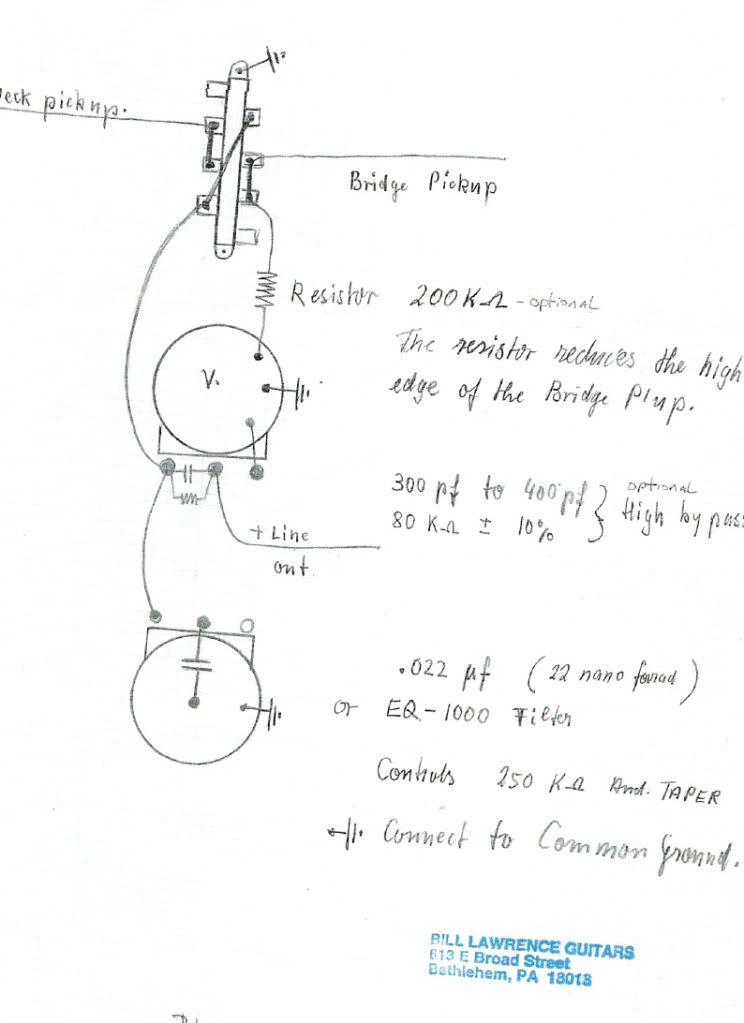 eck pickup.
Bridge Pickup
Resistor 200 KΩ - optional
The resistor reduces the high
edge of the Bridge P/up.
V.
300 pf to 400 pf } optional
80 KΩ ± 10% } High by pass
+ Line
out.
.022 µf (22 nano farad)
or EQ-1000 Filter
Controls 250 KΩ Aud. TAPER
Connect to Common Ground.
BILL LAWRENCE GUITARS
613 E Broad Street
Bethlehem, PA 18018